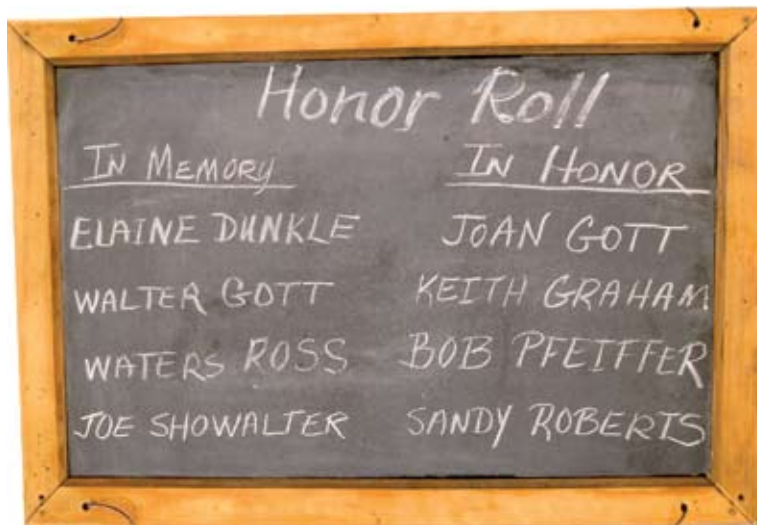 Honor Roll
IN MEMORY
ELAINE DUNKLE
WALTER GOTT
WATERS ROSS
JOE SHOWALTER
IN HONOR
JOAN GOTT
KEITH GRAHAM
BOB PFEIFFER
SANDY ROBERTS